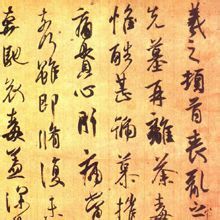 羲之頓首喪亂之
先墓再離荼毒
惟酷甚號慕摧
痛貫心肝痛當
奈何雖即脩復未
奔馳哀毒益深